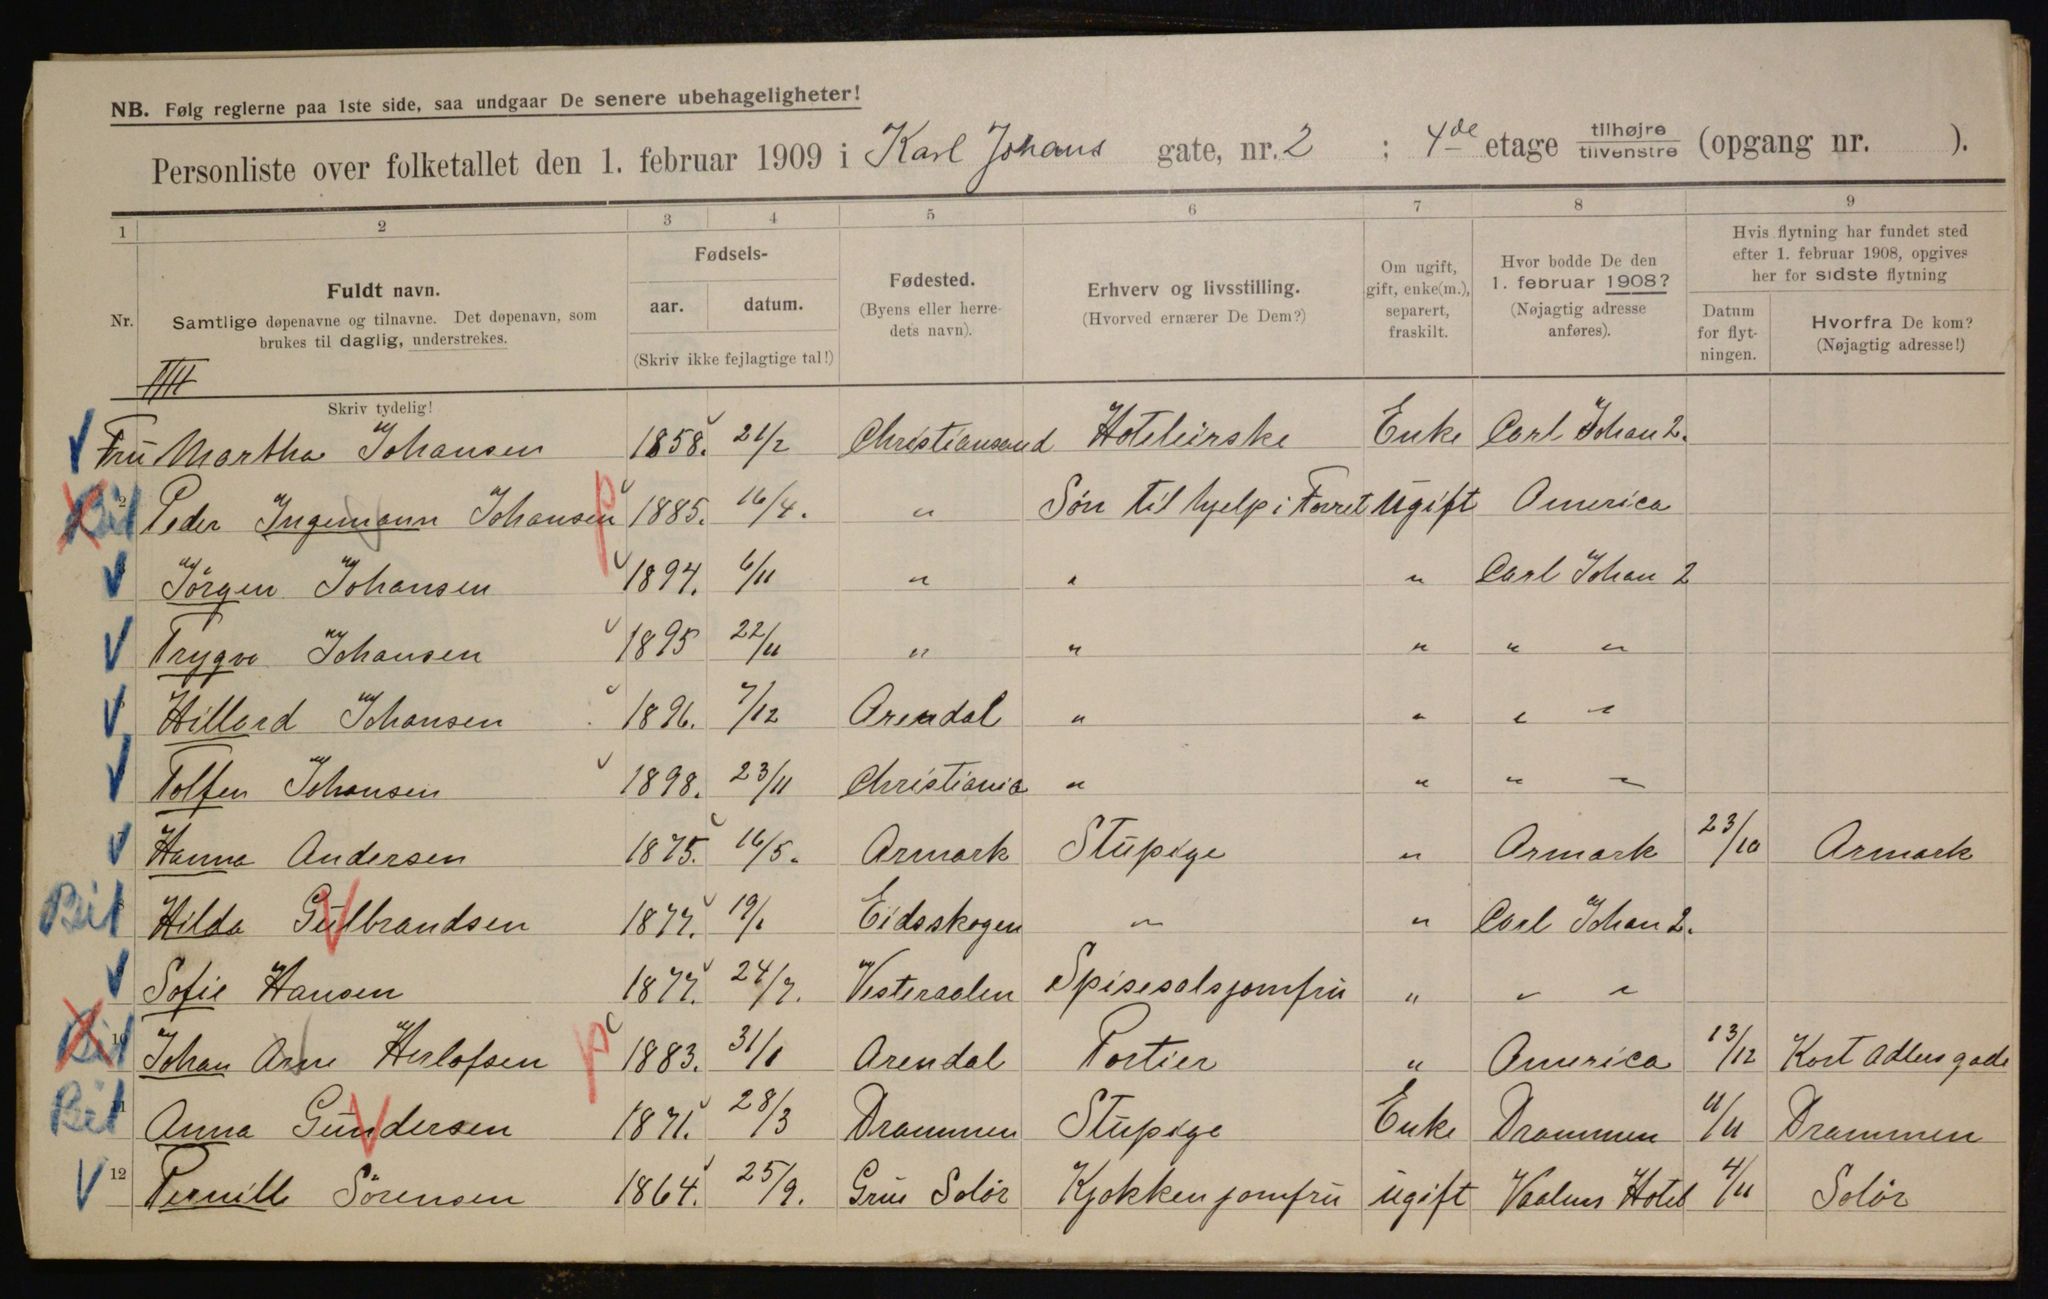 NB. Følg reglerne paa 1ste side, saa undgaar De senere ubehageligheter!
Personliste over folketallet den 1. februar 1909 i Karl Johans gate, nr. 2 ; 4de etage tilhøjre tilvenstre (opgang nr. ).
1 2 3 4 5 6 7 8 9
Nr.
Fuldt navn.
Samtlige døpenavne og tilnavne. Det døpenavn, som
brukes til daglig, understrekes.
Skriv tydelig!
Fødsels-
aar. datum.
(Skriv ikke fejlagtige tal!)
Fødested.
(Byens eller herre-
dets navn).
Erhverv og livsstilling.
(Hvorved ernærer De Dem?)
Om ugift,
gift, enke(m.),
separert,
fraskilt.
Hvor bodde De den
1. februar 1908?
(Nøjagtig adresse
anføres).
Hvis flytning har fundet sted
efter 1. februar 1908, opgives
her for sidste flytning
Datum
for flyt-
ningen.
Hvorfra De kom?
(Nøjagtig adresse!)
Fru Martha Johansen 1858. 21/2 Christiansand Hoteleirske Enke Carl Johan 2.
Bil 2 Peder Ingemann Johansen p 1885. 16/4. " Søn til hjelp i Forret ugift America
Jörgen Johansen 1894. 6/11 " " " Carl Johan 2
Trygve Johansen 1895 22/11 " " " " "
Hillard Johansen 1896. 7/12 Arendal " " " "
Tolfen Johansen 1898. 23/11 Christiania " " " "
Hanna Andersen 1875. 16/5. Armark Stupige " Armark 23/10 Armark
Bil Hilda Gulbrandsen 1877. 19/1 Eidsskogen " " Carl Johan 2.
Sofie Hansen 1877. 24/7. Vesteraalen Spisesalsjomfru " " "
Bil 10 Johan Arne Herlofsen p 1883. 31/1 Arendal Portier " America 13/12 Kort Adlersgade
Bil 11 Anna Gundersen 1871. 28/3 Drammen Stupige Enke Drammen 11/11 Drammen
12 Pernille Sörensen 1864. 25/9. Grue Solör Kjøkkenjomfru ugift Vaalers Hotel 4/11 Solör